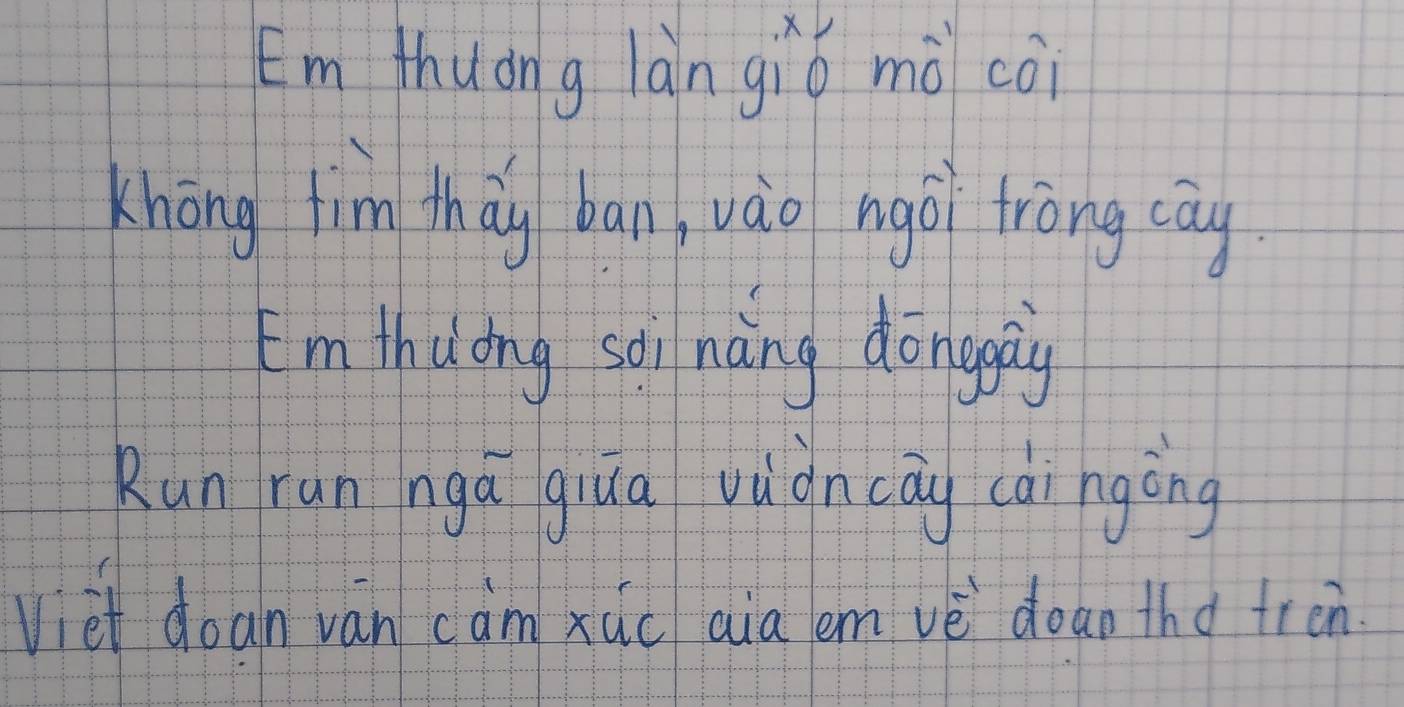 Em thương làn gió mồ côi
Không tìm thấy bạn, vào ngồi trông cây.
Em thương sợi nắng đông gầy
Run run ngã giữa vườn cây cải ngồng
Viết đoạn văn cảm xúc của em về đoạn thơ trên.